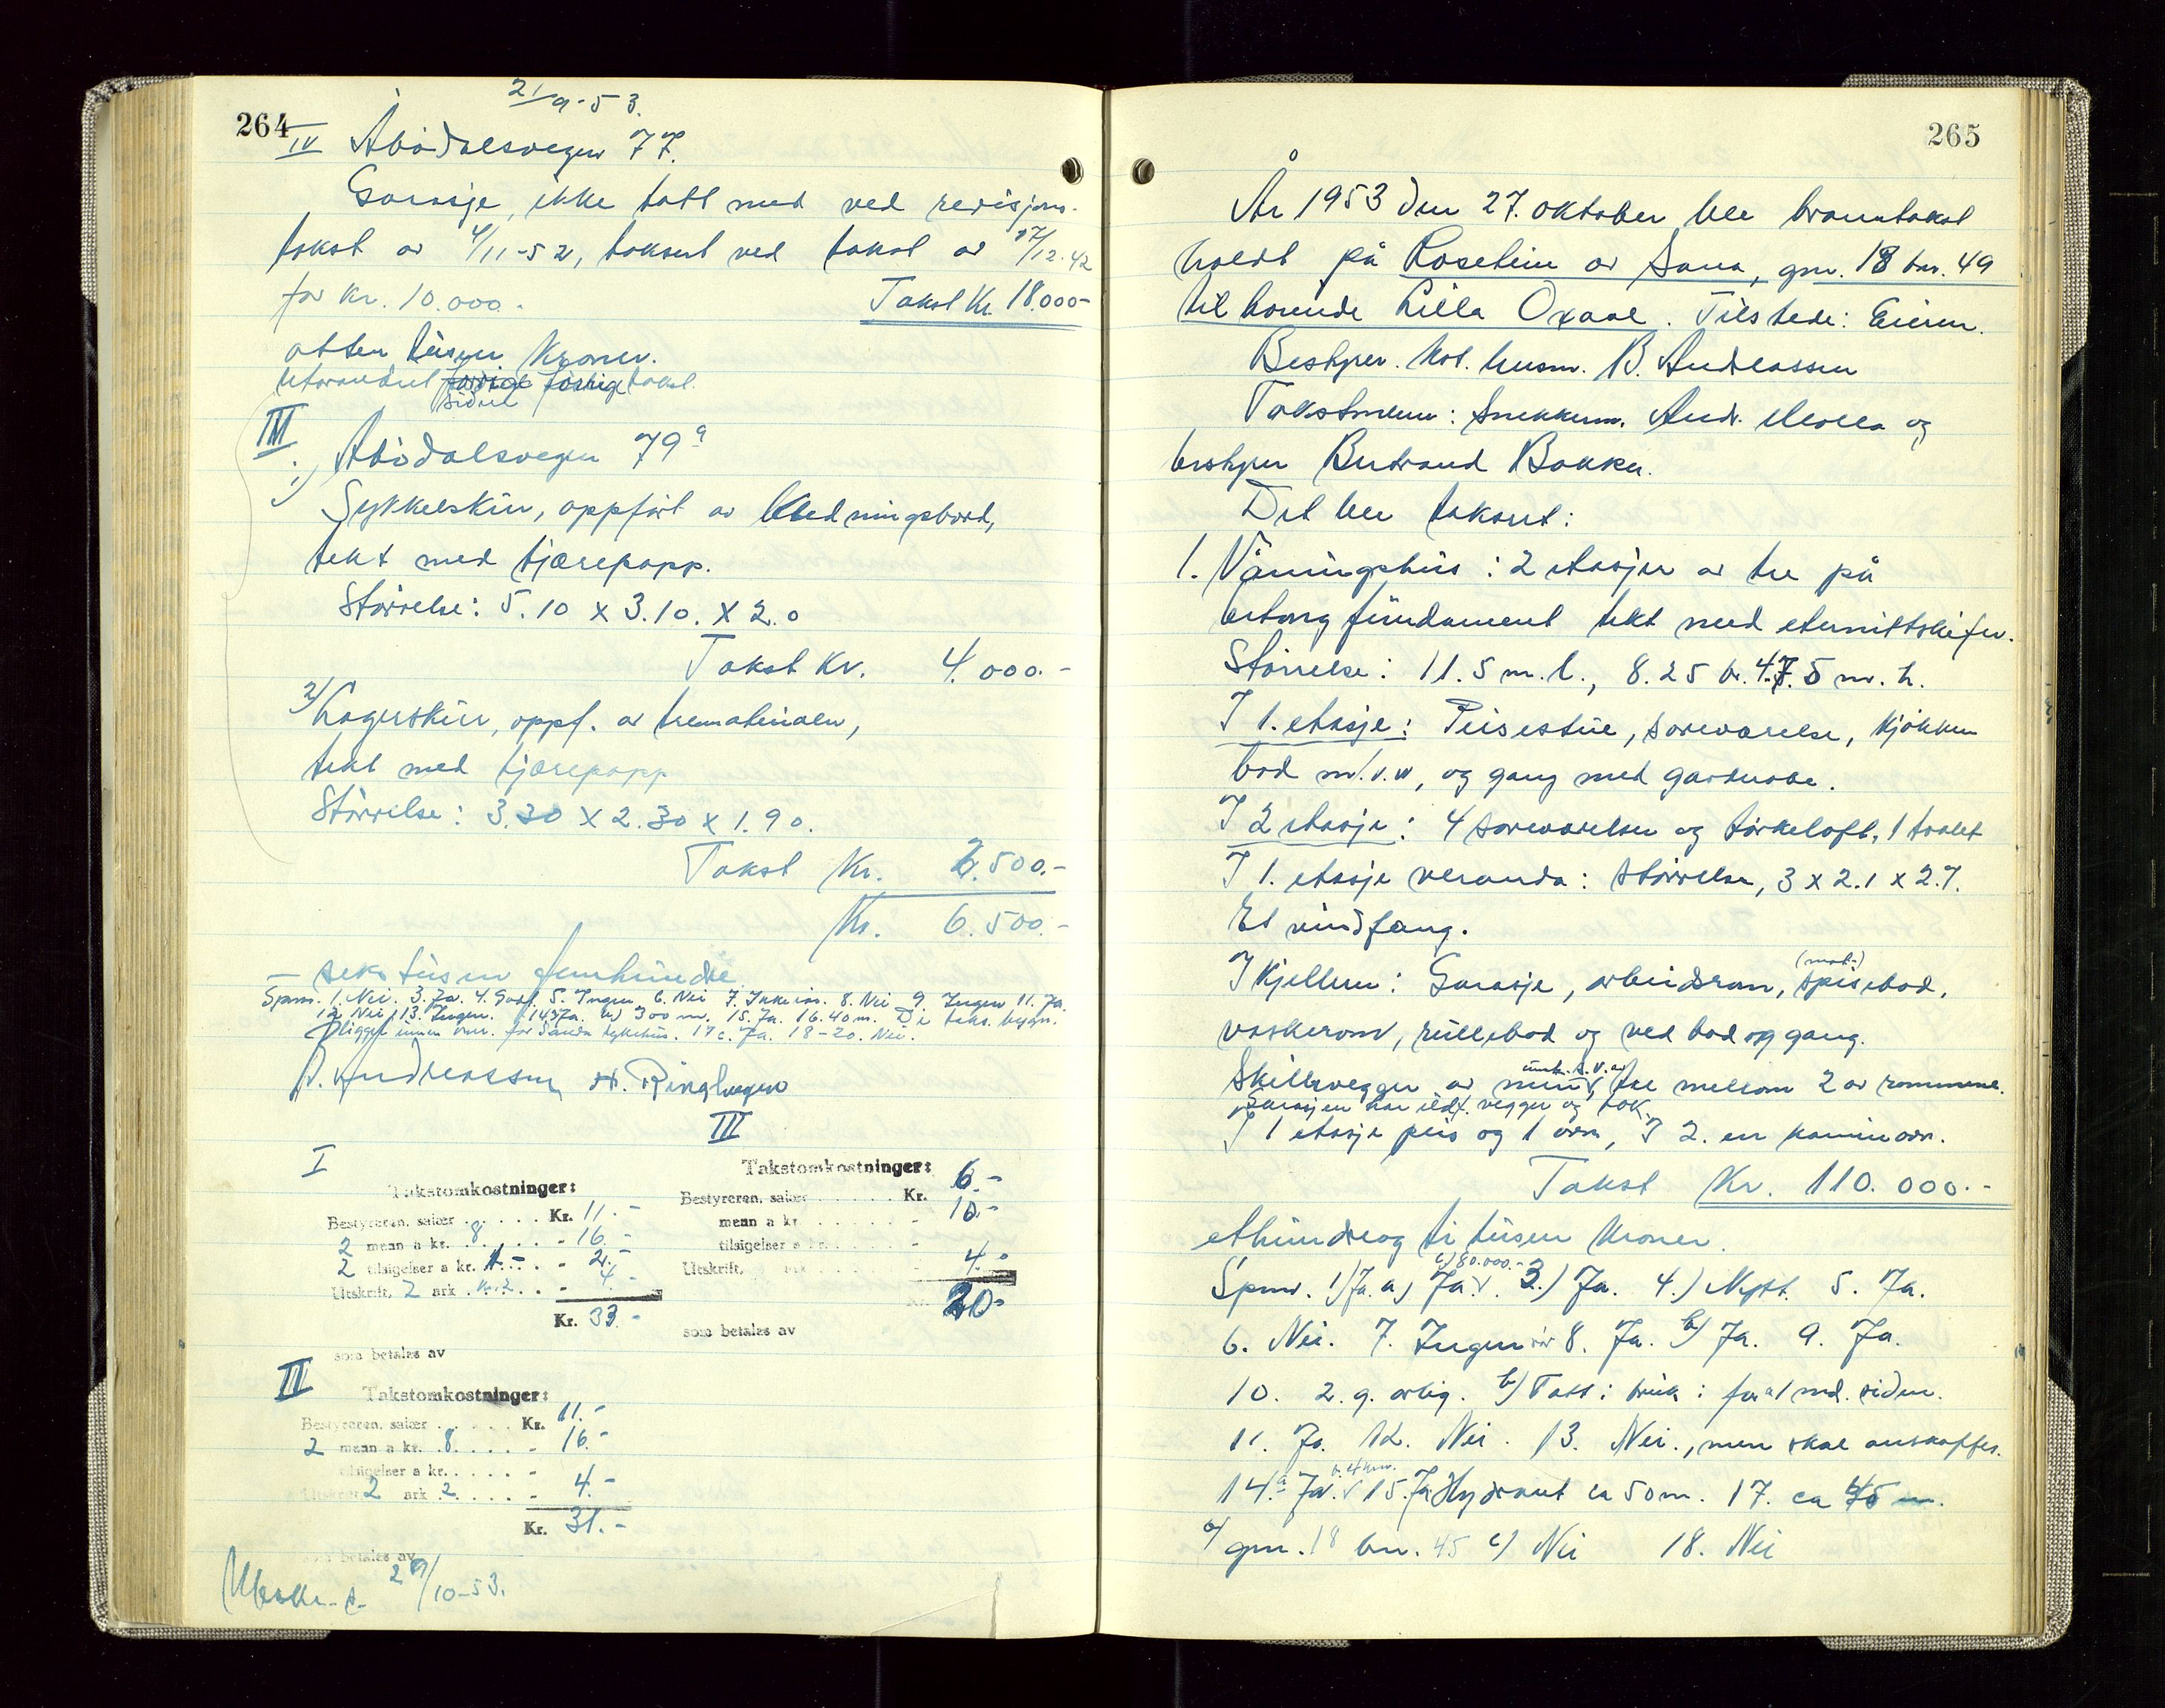 264
21/9-53.
IV Åbødalsvegen 77.
Garasje, ikke tatt med ved revisjons-
takst av 4/11-52, taksert ved takst av 17/12-42
for kr. 10.000.- Takst Kr. 18.000-
atten tusen Kroner.
Uforandret forrige takst.
siden
III
1) Åbødalsvegen 79a
Sykkelskur, oppført av kledningsbord,
tekt med tjærepapp.
Størrelse: 5.10 x 3.10. x 2.0
Takst Kr. 4.000.-
2) Lagerskur, oppf. av trematerialer,
tekt med tjærepapp
Størrelse: 3.30 x 2.30 x 1.90.
Takst Kr. 2.500.-
Kr. 6.500.-
— seks tusen femhundre
Spm. 1. Nei. 3. Ja. 4. Godt. 5. Ingen. 6. Nei 7. Ikke 8. Nei 9. Ingen 11. Ja.
12. Nei, 13. Ingen. 14. Ja. b) 300 m. 15. Ja. 16. 40 m. De taks. bygn.
ligger innen omr. for Sauda sykehus. 17 c. Ja. 18-20. Nei.
B. Andreassen H. Ringhagen
III
I
Takstomkostninger:
Bestyreren, salær Kr. 11.-
2 menn a kr. 8 - 16.-
2 tilsigelser a kr. 1.- - 2.-
Utskrift, 2 ark kr. 2 - 4.-
Kr. 33.-
som betales av
Takstomkostninger:
Bestyreren, salær Kr. 6.-
menn a kr. - 10.-
tilsigelser a kr. -
Utskrift, ark - 4.-
Kr. 20.-
som betales av
II
Takstomkostninger:
Bestyreren, salær Kr. 11.-
2 menn a kr. 8. - 16.-
tilsigelser a kr. -
Utskrift 2 ark 2. - 4.-
Kr. 31.-
som betales av
Utskr. s. 29/10-53.
265
År 1953 den 27. oktober ble branntakst
holdt på Roseheim av Saua, gnr. 18 bnr. 49
tilhørende Lilla Oxaal. Tilstede: Eieren.
Bestyrer. kst. husm. B. Andreassen
Takstmenn: Snekkerm. Andr. Molla og
bestyrer Bertrand Bakka.
Det ble taksert:
1. Våningshus: 2 etasjer av tre på
betong fundament tekt med eternittskifer.
Størrelse: 11.5 m. l., 8.25 b. 4.75 m. h.
I 1. etasje: Peisestue, soveværelse, kjøkken
bad m/. v.w, og gang med garderobe.
I 2 etasje: 4 soveværelser og tørkeloft, 1 toalet
I 1. etasje veranda: størrelse, 3 x 2.1 x 2.7.
Et vindfang.
(mat-)
I Kjelleren: Garasje, arbeidsrom, spisebod,
vaskerom, rullebod og vedbod og gang.
Skillevegger av mur, unt. s. v. av tre mellom 2 av rommene.
Garasjen har ildf. vegger og tak.
I 1 etasje peis og 1 ovn, I 2. en kaminovn.
Takst Kr. 110.000.-
etthundreog ti tusen kroner.
Spm. 1) Ja. a) Ja. c) 80.000.- 3.) Ja. 4.) Nytt. 5. Ja.
6. Nei. 7. Ingen 8. Ja. b) Ja. 9. Ja.
10. 2. g. årlig. b) Tatt i bruk i for 1 md. siden.
11. Ja. 12. Nei. 13. Nei., men skal anskaffes.
14.a Ja. b. 4 km. 15. Ja Hydrant ca 50 m. 17. ca 45 m.
b) gnr. 18 bnr. 45 c) Nei 18. Nei